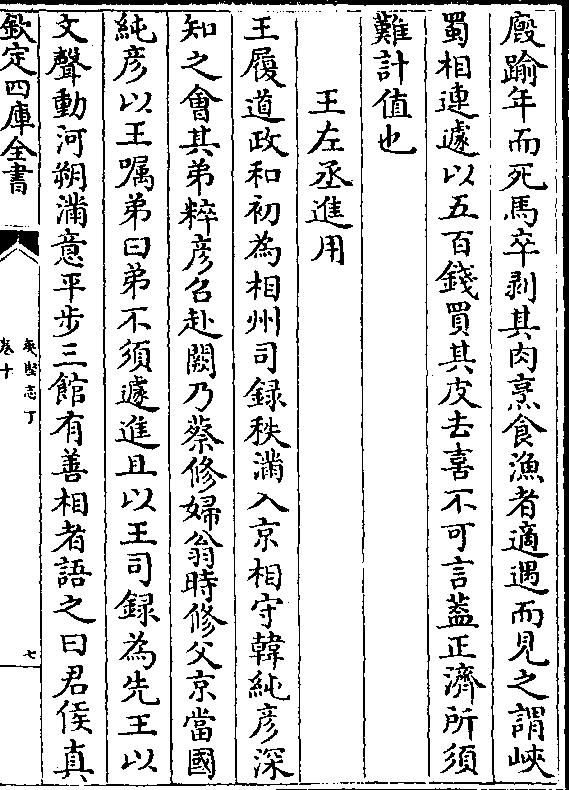 廐踰年而死馬卒剥其肉烹食漁者適遇而見之謂峽
蜀相連遽以五百錢買其皮去喜不可言葢正濟所須
難計值也
王左丞進用
王履道政和初為相州司録秩滿入京相守韓純彦深
知之會其弟粹彦召赴闕乃蔡修婦翁時修父京當國
純彦以王嘱弟曰弟不須遽進且以王司録為先王以
文聲動河朔滿意平步三館有善相者語之曰君侯真
欽定四庫全書
夷堅志丁
卷十
七